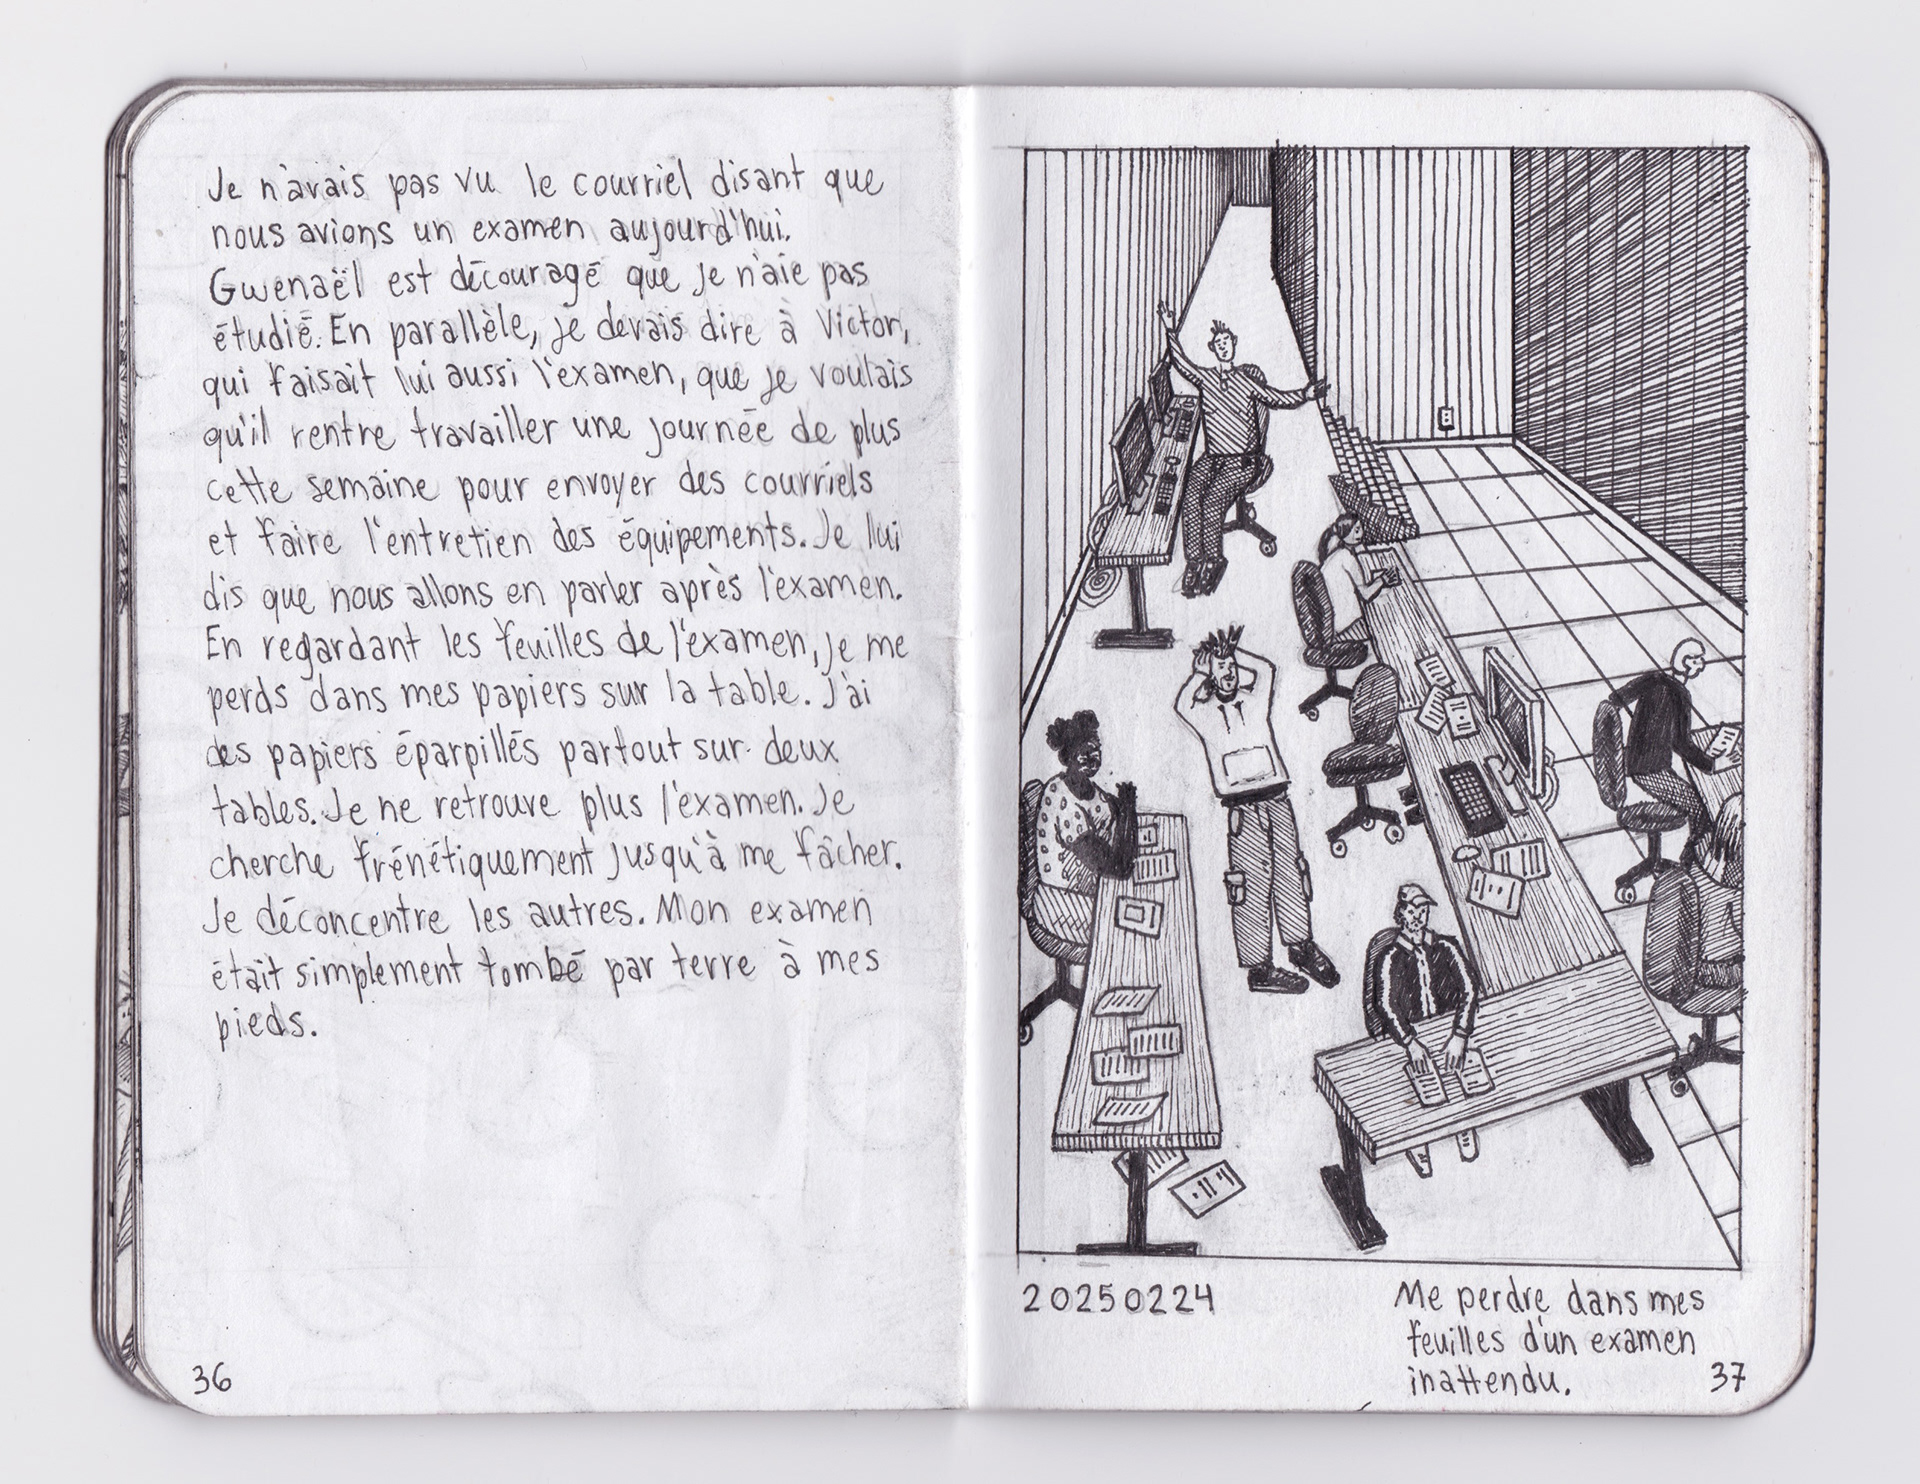 Je n'avais pas vu le courriel disant que
nous avions un examen aujourd'hui.
Gwenaël est découragé que je n'aie pas
étudié. En parallèle, je devais dire à Victor,
qui faisait lui aussi l'examen, que je voulais
qu'il rentre travailler une journée de plus
cette semaine pour envoyer des courriels
et faire l'entretien des équipements. Je lui
dis que nous allons en parler après l'examen.
En regardant les feuilles de l'examen, je me
perds dans mes papiers sur la table. J'ai
des papiers éparpillés partout sur deux
tables. Je ne retrouve plus l'examen. Je
cherche frénétiquement jusqu'à me fâcher.
Je déconcentre les autres. Mon examen
était simplement tombé par terre à mes
pieds.
36
20250224
Me perdre dans mes
feuilles d'un examen
inattendu.
37